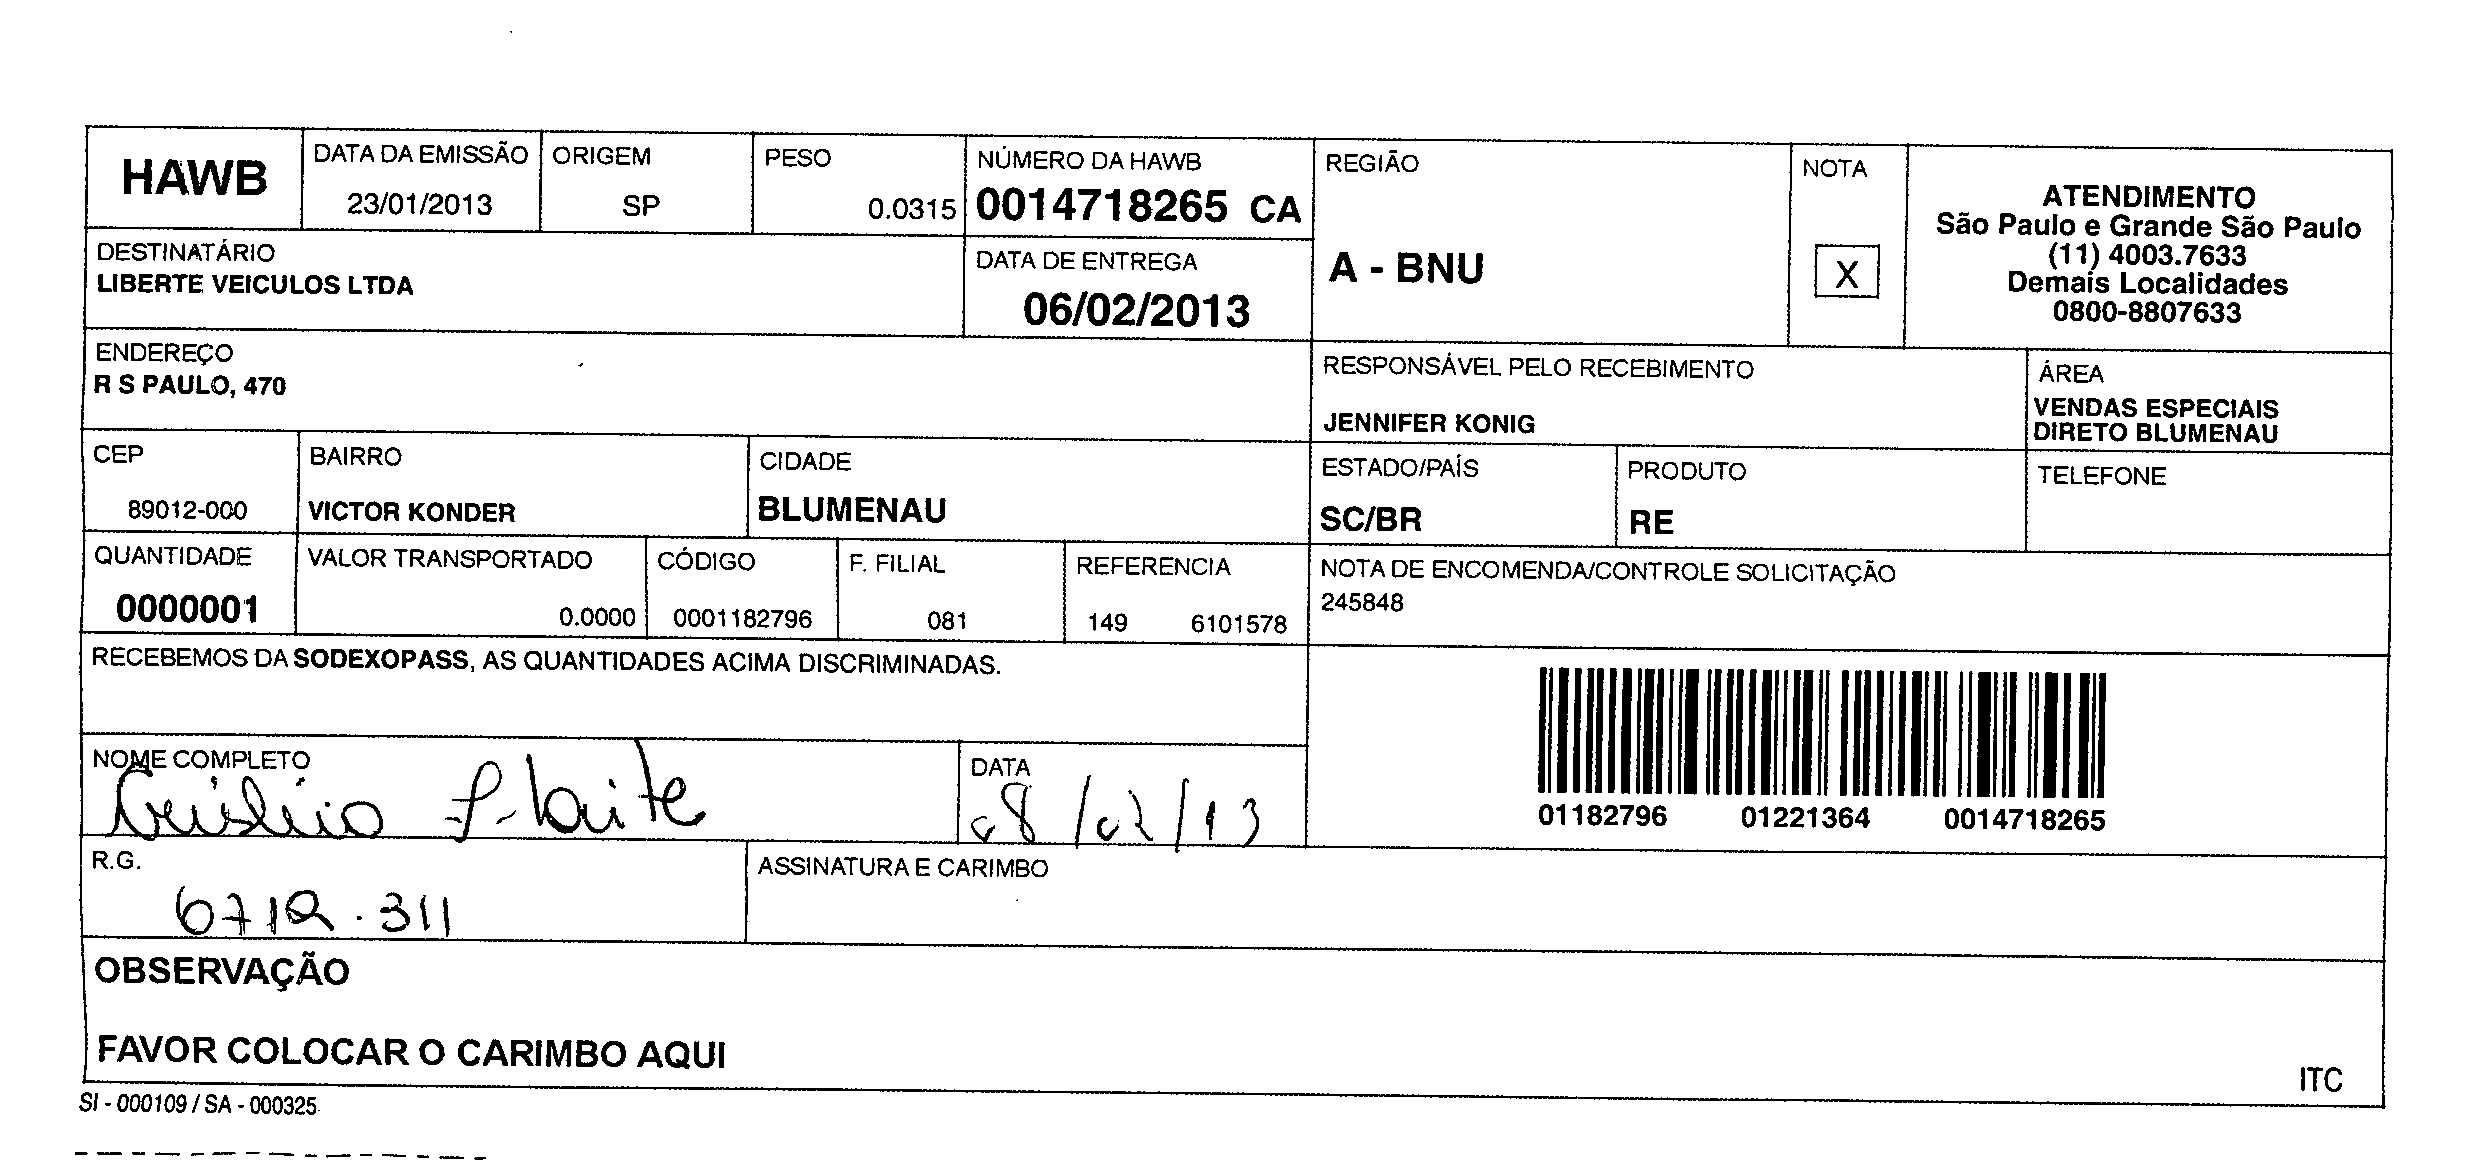 HAWB
DATA DA EMISSÃO
23/01/2013
ORIGEM
SP
PESO
0.0315
NÚMERO DA HAWB
0014718265 CA
REGIÃO
A - BNU
NOTA
X
ATENDIMENTO
São Paulo e Grande São Paulo
(11) 4003.7633
Demais Localidades
0800-8807633
DESTINATÁRIO
LIBERTE VEICULOS LTDA
DATA DE ENTREGA
06/02/2013
ENDEREÇO
R S PAULO, 470
RESPONSÁVEL PELO RECEBIMENTO
JENNIFER KONIG
ÁREA
VENDAS ESPECIAIS
DIRETO BLUMENAU
CEP
89012-000
BAIRRO
VICTOR KONDER
CIDADE
BLUMENAU
ESTADO/PAÍS
SC/BR
PRODUTO
RE
TELEFONE
QUANTIDADE
0000001
VALOR TRANSPORTADO
0.0000
CÓDIGO
0001182796
F. FILIAL
081
REFERENCIA
149 6101578
NOTA DE ENCOMENDA/CONTROLE SOLICITAÇÃO
245848
RECEBEMOS DA SODEXOPASS, AS QUANTIDADES ACIMA DISCRIMINADAS.
01182796 01221364 0014718265
NOME COMPLETO
DATA
08/02/13
R.G.
6712.311
ASSINATURA E CARIMBO
OBSERVAÇÃO
FAVOR COLOCAR O CARIMBO AQUI
ITC
SI - 000109 / SA - 000325